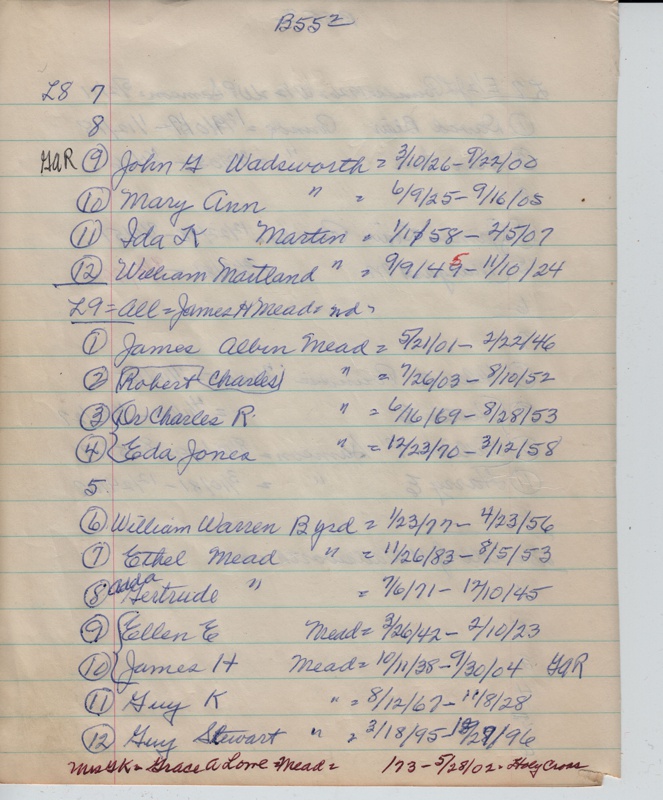 B552
L8 7
8
GaR 9 John G Wadsworth = 3/10/26 - 9/22/00
10 Mary Ann " = 6/9/25 - 9/16/05
11 Ida K Martin = 1/1/58 - 2/5/07
12 William Maitland " = 9/9/49 5 - 11/10/24
L9 = all = James H Mead =
1 James Albin Mead = 5/21/01 - 2/22/46
2 Robert Charles " = 7/26/03 - 8/10/52
3 Dr Charles R. " = 6/16/69 - 8/28/53
4 Eda Jones " = 12/23/70 - 3/12/58
5.
6 William Warren Byrd = 1/23/77 - 4/23/56
7 Ethel Mead " = 11/26/83 - 8/5/53
8 adda Gertrude " = 7/6/71 - 12/10/45
9 Ellen E Mead = 3/26/42 - 2/10/23
10 James H Mead = 10/11/38 - 9/30/04 GaR
11 Guy K " = 8/12/67 - 11/8/28
12 Guy Stewart " = 3/18/95 - /96
Mrs GK = Grace A Lowe = Mead = 1/73 - 5/28/02 = Holy Cross